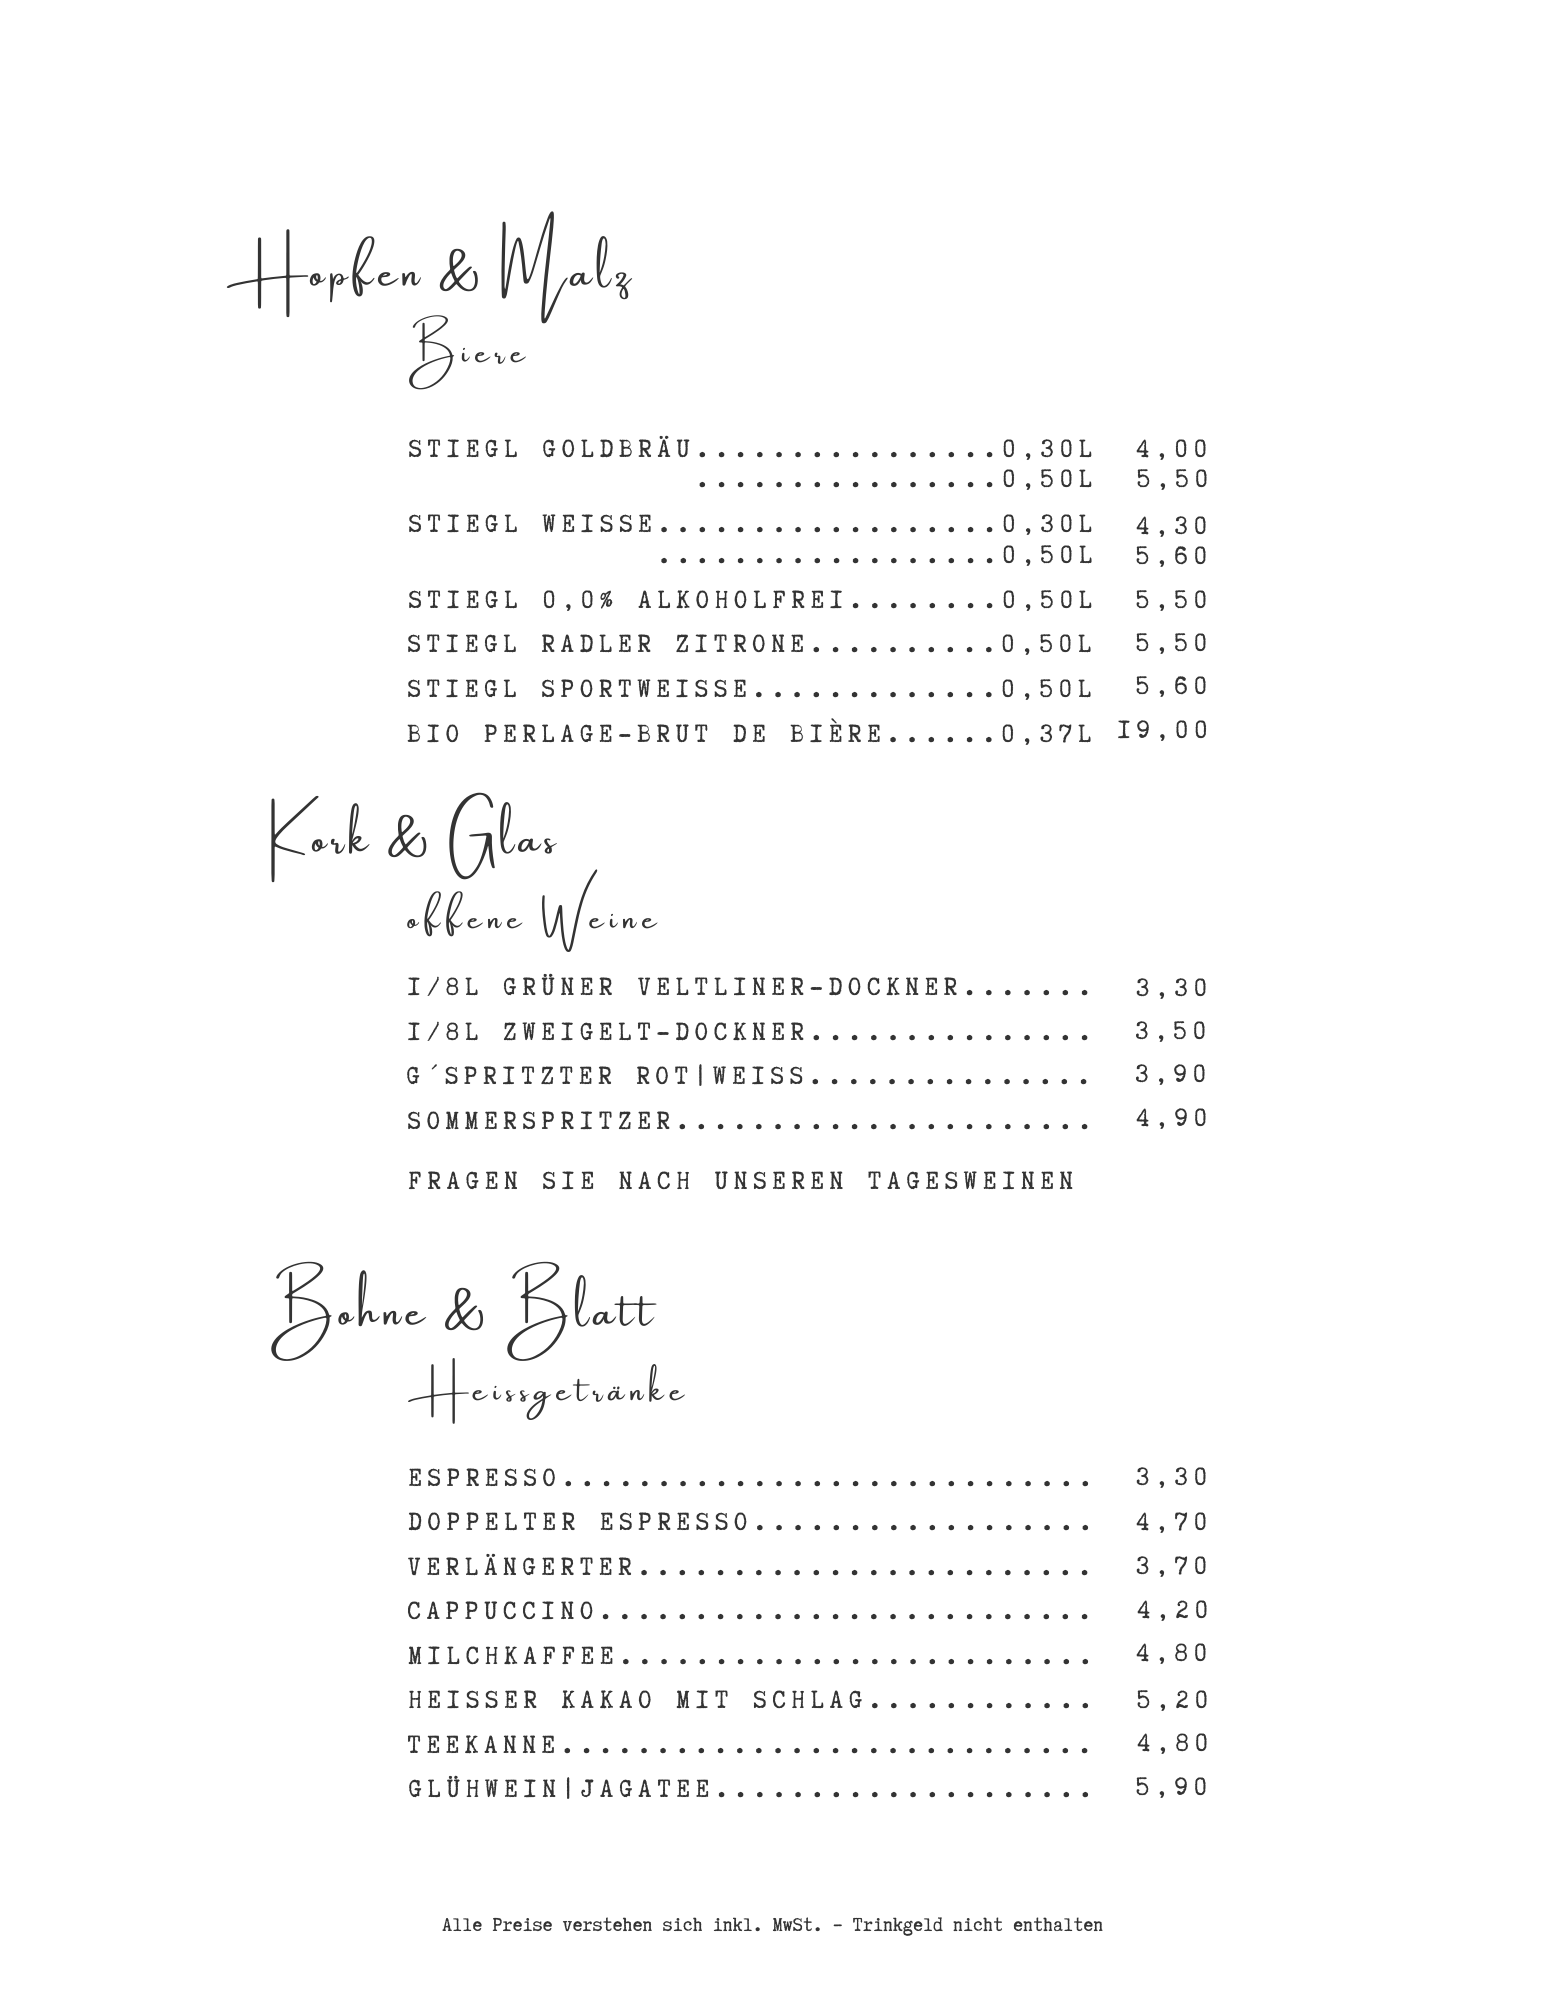 Hopfen & Malz
Biere
STIEGL GOLDBRÄU................0,30L 4,00
................0,50L 5,50
STIEGL WEISSE..................0,30L 4,30
..................0,50L 5,60
STIEGL 0,0% ALKOHOLFREI........0,50L 5,50
STIEGL RADLER ZITRONE..........0,50L 5,50
STIEGL SPORTWEISSE.............0,50L 5,60
BIO PERLAGE-BRUT DE BIÈRE......0,37L 19,00
Kork & Glas
offene Weine
1/8L GRÜNER VELTLINER-DOCKNER....... 3,30
1/8L ZWEIGELT-DOCKNER............... 3,50
G´SPRITZTER ROT|WEISS............... 3,90
SOMMERSPRITZER...................... 4,90
FRAGEN SIE NACH UNSEREN TAGESWEINEN
Bohne & Blatt
Heissgetränke
ESPRESSO............................ 3,30
DOPPELTER ESPRESSO.................. 4,70
VERLÄNGERTER........................ 3,70
CAPPUCCINO.......................... 4,20
MILCHKAFFEE......................... 4,80
HEISSER KAKAO MIT SCHLAG............ 5,20
TEEKANNE............................ 4,80
GLÜHWEIN|JAGATEE.................... 5,90
Alle Preise verstehen sich inkl. MwSt. - Trinkgeld nicht enthalten